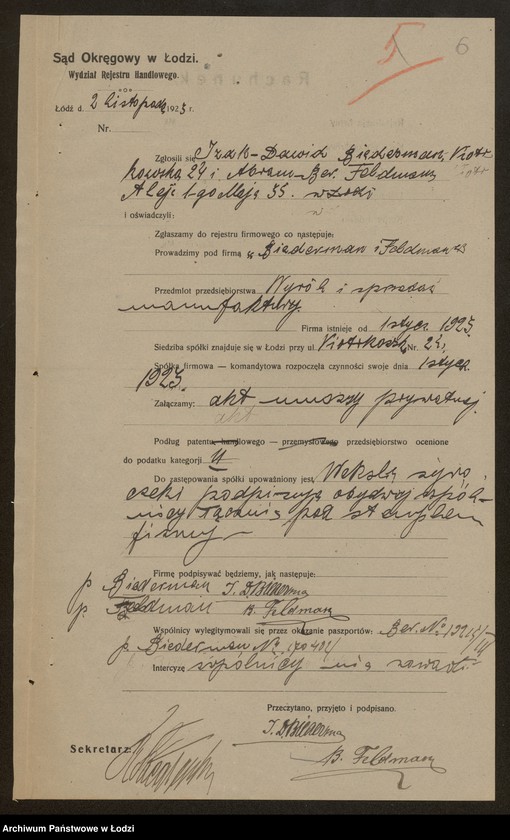 5 6
Sąd Okręgowy w Łodzi.
Wydział Rejestru Handlowego.
Łódź d. 2 listopada 1925 r.
Nr.
Zgłosili się Izak-Dawid Biederman, Piotr-
kowska 24 i Abram-Ber Feldman,
Aleje 1-go Maja 55. w Łodzi
i oświadczyli:
Zgłaszamy do rejestru firmowego co następuje:
Prowadzimy pod firmą „Biederman i Feldman"
Przedmiot przedsiębiorstwa Wyrób i sprzedaż
manufaktury.
Firma istnieje od 1 stycz. 1925.
Siedziba spółki znajduje się w Łodzi przy ul. Piotrkowsk. Nr. 24,
Spółka firmowa — komandytowa rozpoczęła czynności swoje dnia 1 stycz.
1925.
Załączamy: akt prywatny.
akt
Podług patentu handlowego — przemysłowego przedsiębiorstwo ocenione
do podatku kategorji II
Do zastępowania spółki upoważniony jest Weksle, żyro,
czeki podpisują obydwaj wspól-
nicy łącznie pod stemplem
firmy.
Firmę podpisywać będziemy, jak następuje:
p. Biederman I. D. Biederman
p. Feldman B. Feldman
Wspólnicy wylegitymowali się przez okazanie paszportów: Ber. No
p. Biederman No
Intercyzę wspólnicy nie zawarli
Przeczytano, przyjęto i podpisano.
I. D. Biederman
Sekretarz:
B. Feldman
Archiwum Państwowe w Łodzi